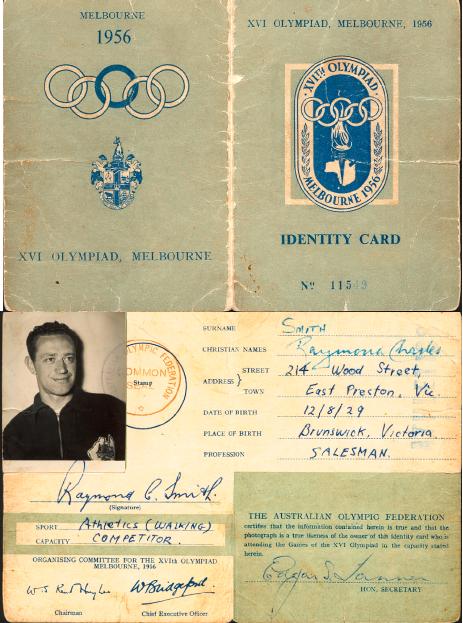 MELBOURNE
1956
XVI OLYMPIAD, MELBOURNE
XVI OLYMPIAD, MELBOURNE, 1956
XVITH OLYMPIAD
MELBOURNE 1956
IDENTITY CARD
No 11549
OLYMPIC FEDERATION
COMMON
SEAL
Stamp
SURNAME SMITH
CHRISTIAN NAMES Raymond Charles
ADDRESS } STREET 214 Wood Street,
TOWN East Preston, Vic.
DATE OF BIRTH 12/8/29
PLACE OF BIRTH Brunswick, Victoria.
PROFESSION SALESMAN.
Raymond C. Smith.
(Signature)
SPORT Athletics (WALKING)
CAPACITY COMPETITOR.
ORGANISING COMMITTEE FOR THE XVIth OLYMPIAD
MELBOURNE, 1956
W S Kent Hughes W Bridgeford
Chairman Chief Executive Officer
THE AUSTRALIAN OLYMPIC FEDERATION
certifies that the information contained herein is true and that the
photograph is a true likeness of the owner of this identity card who is
attending the Games of the XVI Olympiad in the capacity stated
herein.
Edgar S. Tanner
HON. SECRETARY